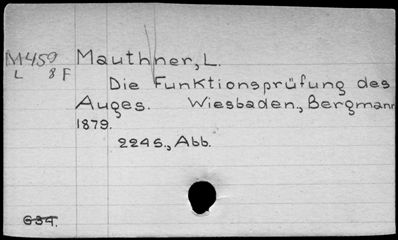 M459 Mauthner, L.
L 8 F
Die Funktionsprüfung des
Auges. Wiesbaden, Bergmann
1879.
224 S., Abb.
634.